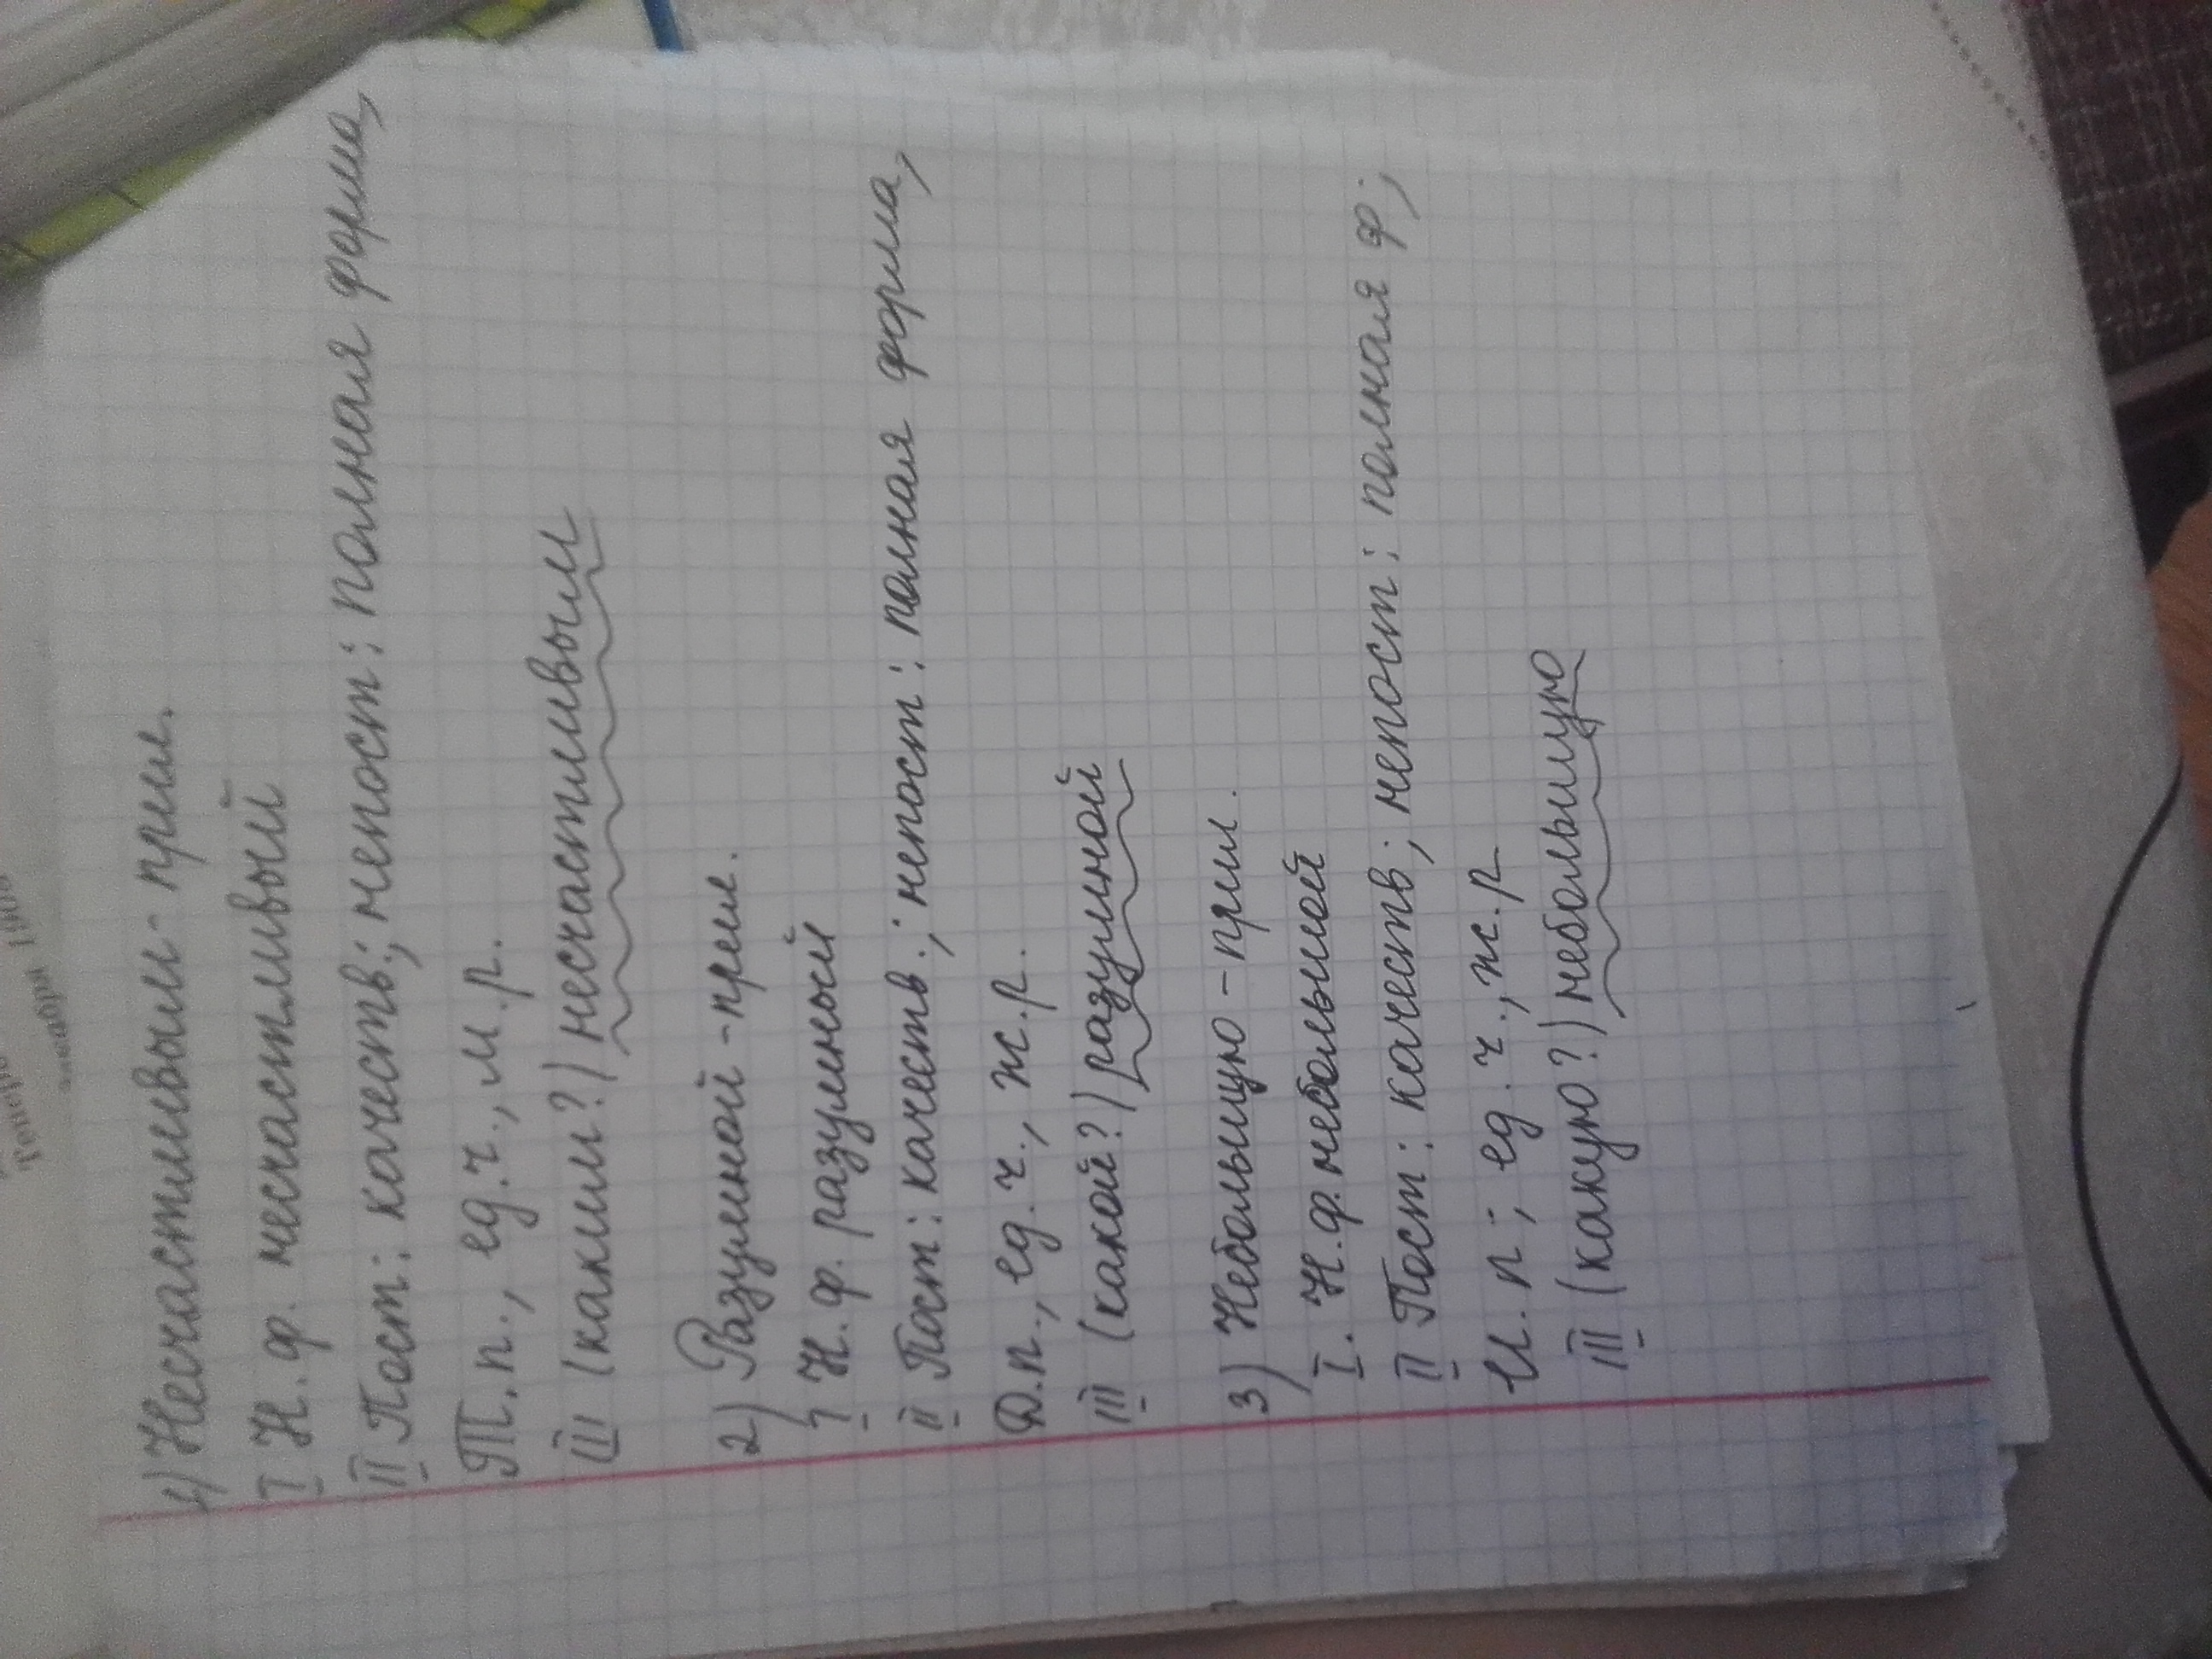 1) Несчастливым - прил.
I Н. ф. несчастливый
II Пост: качеств; непост: полная форма,
Т. п., ед. ч., м. р.
III (каким?) несчастливым
2) Разумной - прил.
I Н. ф. разумный
II Пост: качеств.; непост: полная форма,
Д. п., ед. ч., ж. р.
III (какой?) разумной
3) Небольшую - прил.
I. Н. ф. небольшой
II Пост: качеств; непост: полная ф;
И. п.; ед. ч., ж. р
III (какую?) небольшую